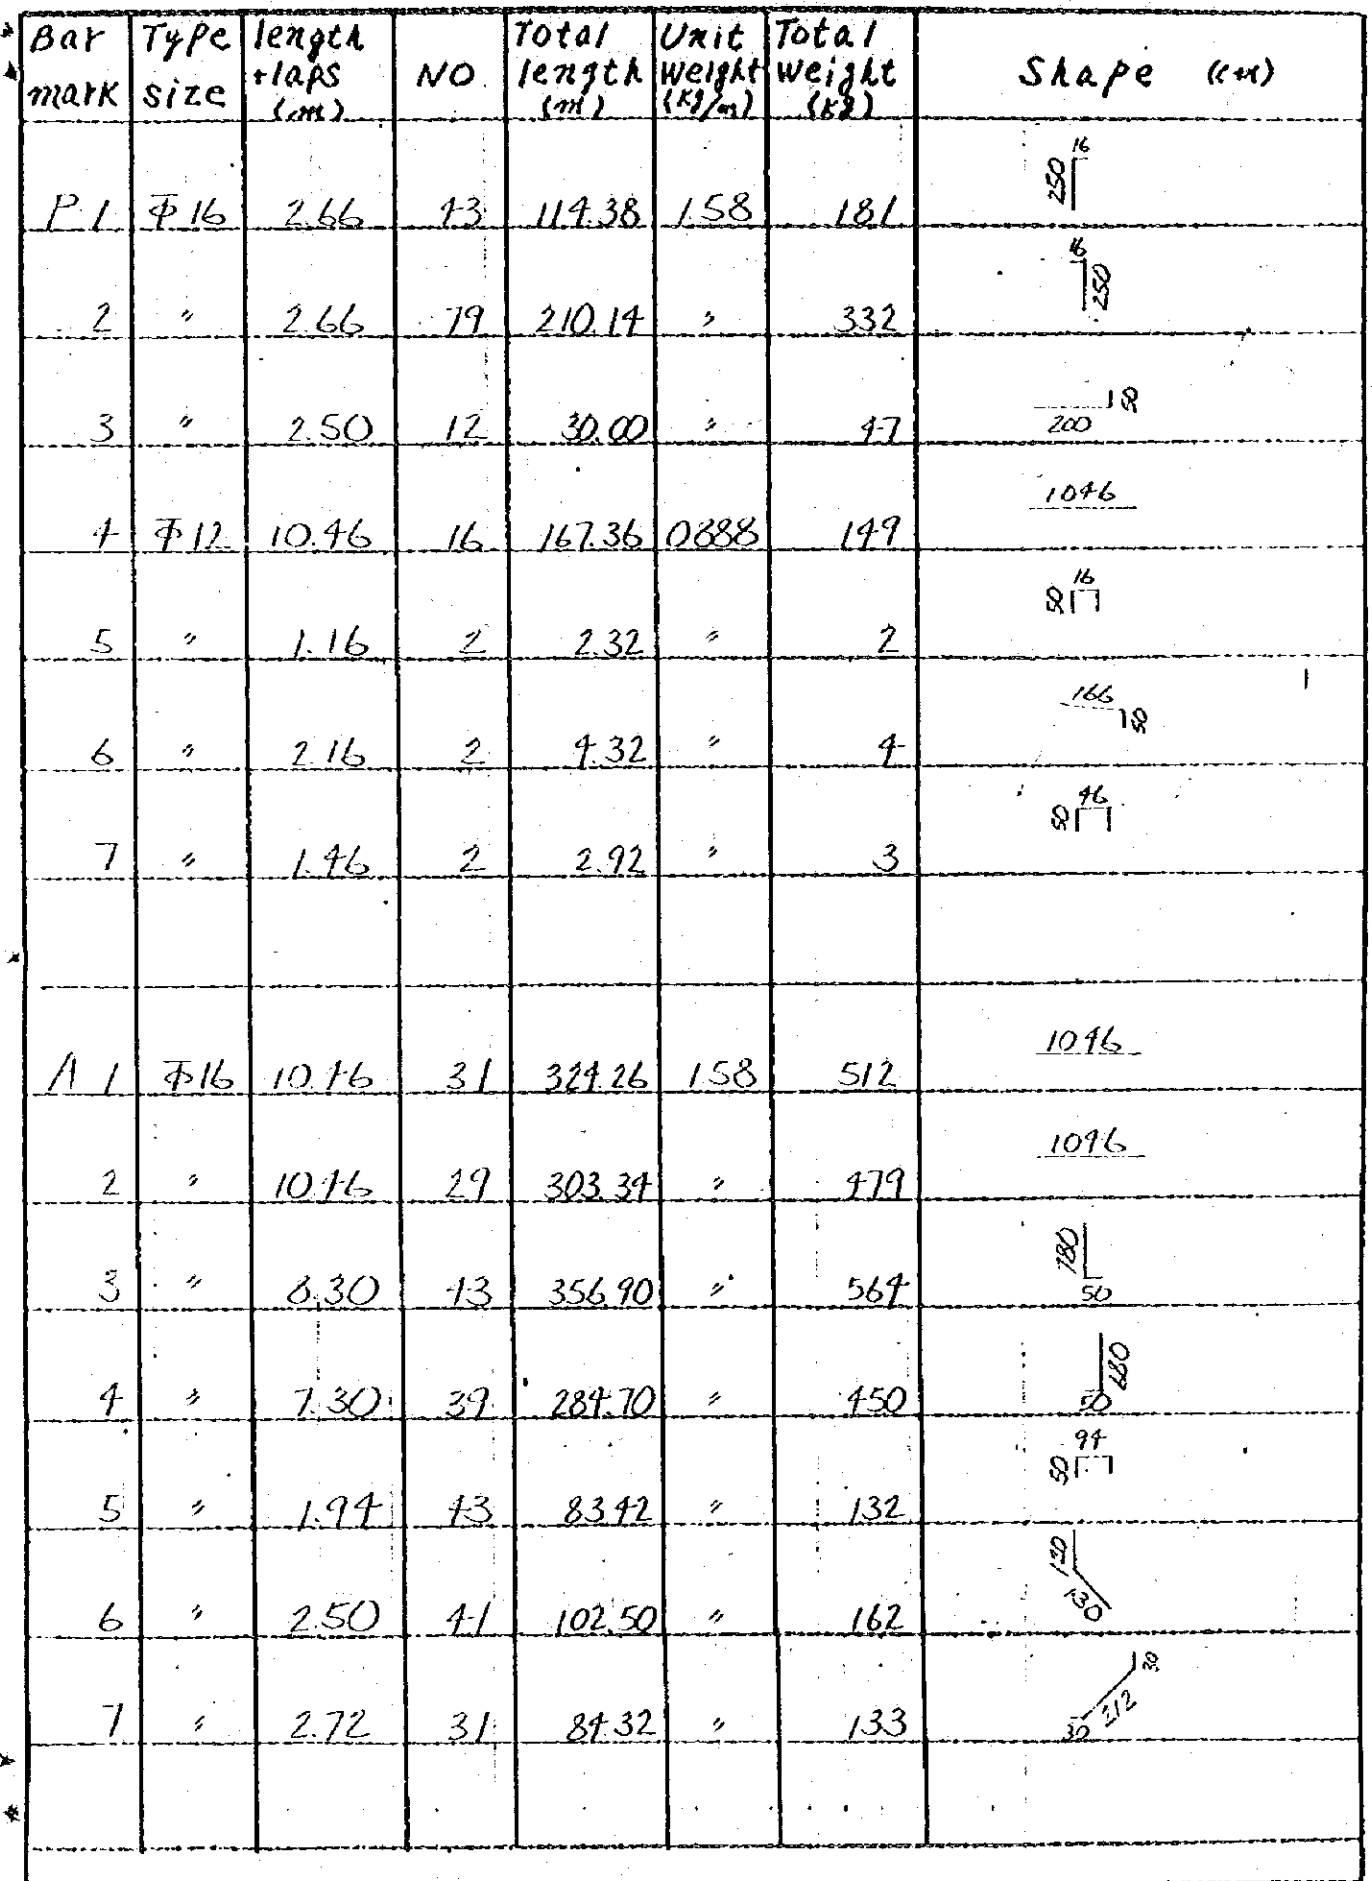 Bar mark Type size length +laps (m) NO Total length (m) Unit weight (kg/m) Total weight (kg) Shape (cm)
16
250
P 1 Φ16 2.66 43 114.38 1.58 181
16
250
2 〃 2.66 79 210.14 〃 332
50
3 〃 2.50 12 30.00 〃 47 200
1046
4 Φ12 10.46 16 167.36 0.888 149
16
50
5 〃 1.16 2 2.32 〃 2
166
50
6 〃 2.16 2 4.32 〃 4
46
50
7 〃 1.46 2 2.92 〃 3
1046
A 1 Φ16 10.46 31 324.26 1.58 512
1046
2 〃 10.46 29 303.34 〃 479
780
3 〃 8.30 43 356.90 〃 564 50
680
4 〃 7.30 39 284.70 〃 450 50
94
50
5 〃 1.94 43 83.42 〃 132
120
130
6 〃 2.50 41 102.50 〃 162
30
212
7 〃 2.72 31 84.32 〃 133 30